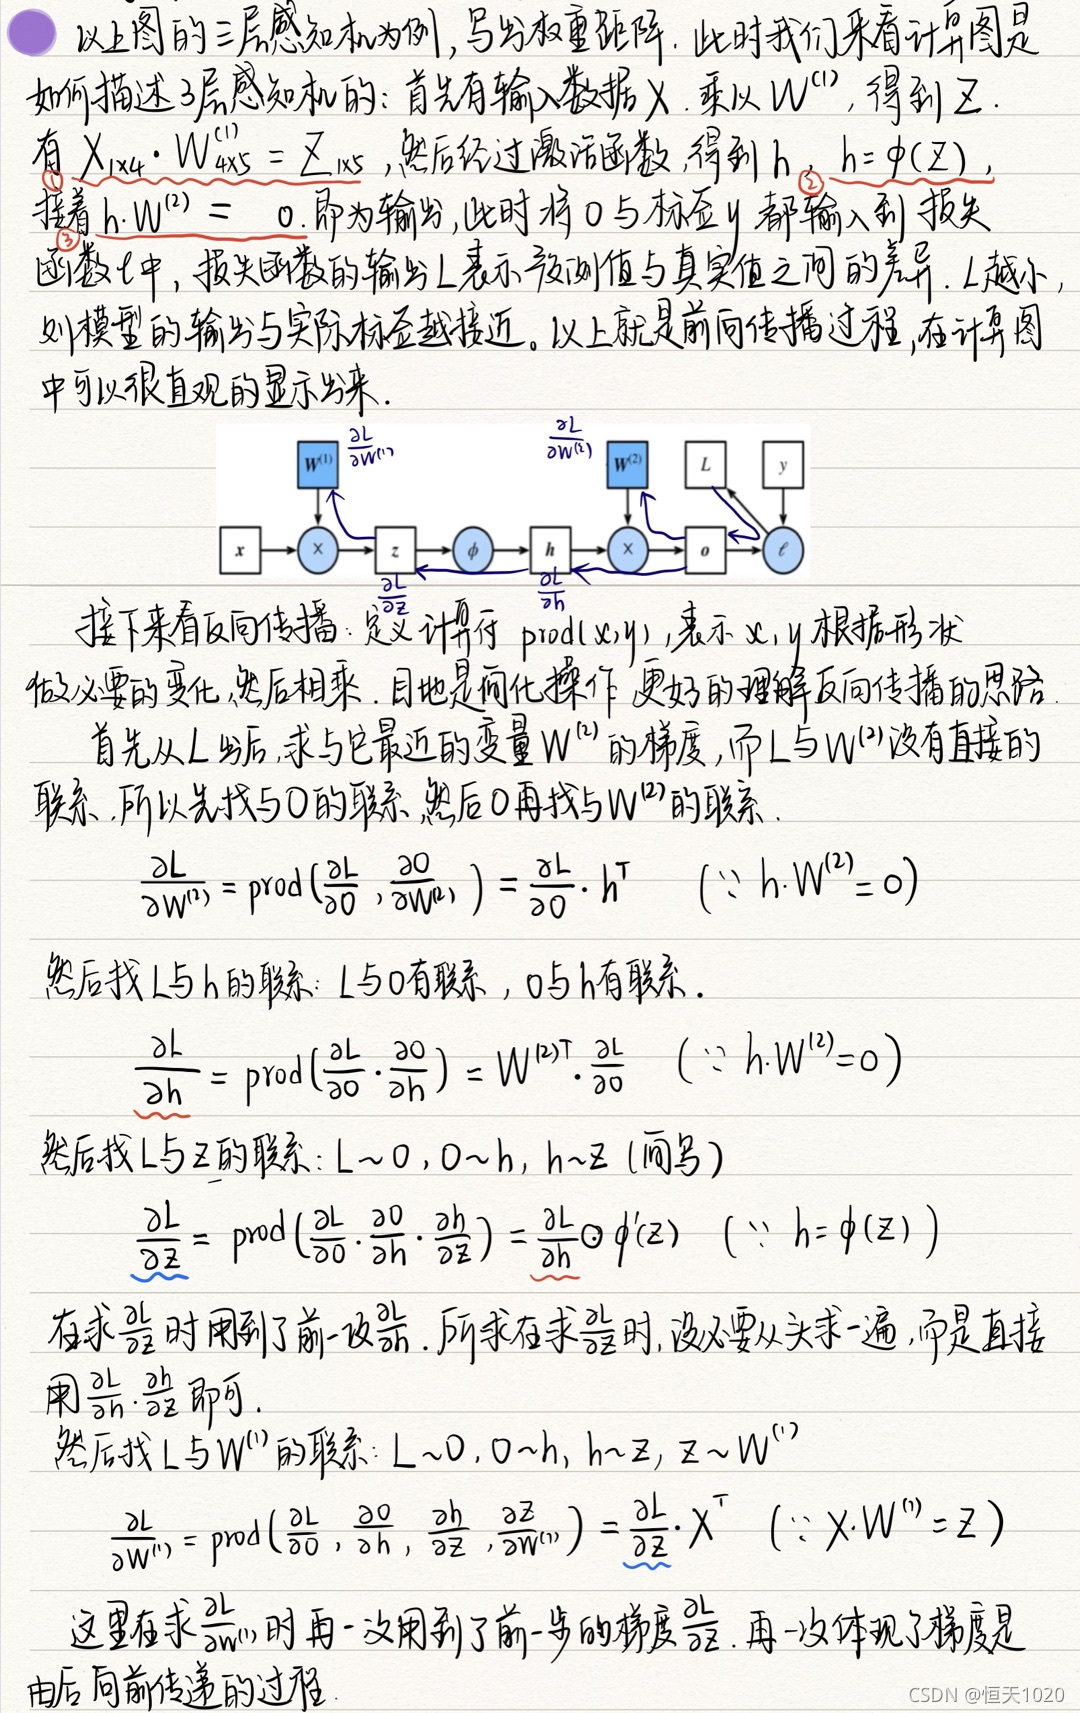 以上图的三层感知机为例,写出权重矩阵. 此时我们来看计算图是
如何描述3层感知机的: 首先有输入数据X. 乘以W⁽¹⁾, 得到Z.
有 X₁ₓ₄·W⁽¹⁾₄ₓ₅ = Z₁ₓ₅, 然后经过激活函数, 得到h, h=φ(Z),
① ②
接着 h·W⁽²⁾ = O. 即为输出, 此时将O与标签y都输入到损失
③
函数ℓ中, 损失函数的输出L表示预测值与真实值之间的差异. L越小,
则模型的输出与实际标签越接近。以上就是前向传播过程,在计算图
中可以很直观的显示出来.
∂L/∂W⁽¹⁾ ∂L/∂W⁽²⁾
W⁽¹⁾ W⁽²⁾ L y
x × z φ h × o ℓ
∂L/∂Z ∂L/∂h
接下来看反向传播: 定义计算符 prod(x,y), 表示x,y根据形状
做必要的变化,然后相乘. 目地是简化操作 更好的理解反向传播的思路.
首先从L出后,求与它最近的变量W⁽²⁾的梯度,而L与W⁽²⁾没有直接的
联系.所以先找与O的联系,然后O再找与W⁽²⁾的联系.
∂L/∂W⁽²⁾ = prod(∂L/∂O, ∂O/∂W⁽²⁾) = ∂L/∂O · hᵀ (∵ h·W⁽²⁾=O)
然后找L与h的联系: L与O有联系, O与h有联系.
∂L/∂h = prod(∂L/∂O · ∂O/∂h) = W⁽²⁾ᵀ · ∂L/∂O (∵ h·W⁽²⁾=O)
然后找L与Z的联系: L~O, O~h, h~Z (简写)
∂L/∂Z = prod(∂L/∂O · ∂O/∂h · ∂h/∂Z) = ∂L/∂h ⊙ φ′(Z) (∵ h=φ(Z))
在求∂L/∂Z时用到了前一次∂L/∂h. 所求在求∂L/∂Z时,没必要从头求一遍,而是直接
用∂L/∂h · ∂h/∂Z即可.
然后找L与W⁽¹⁾的联系: L~O, O~h, h~Z, Z~W⁽¹⁾
∂L/∂W⁽¹⁾ = prod(∂L/∂O, ∂O/∂h, ∂h/∂Z, ∂Z/∂W⁽¹⁾) = ∂L/∂Z · Xᵀ (∵ X·W⁽¹⁾=Z)
这里在求∂L/∂W⁽¹⁾时再一次用到了前一步的梯度∂L/∂Z. 再一次体现了梯度是
由后向前传递的过程.
CSDN @恒天1020